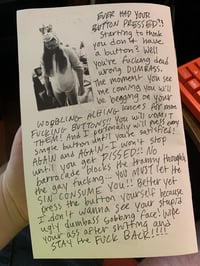 EVER HAD YOUR
BUTTON PRESSED?!
Starting to think
you don't have
a button? Well
you're fucking dead
wrong DUMBASS.
The moment you see
me coming you will
be begging on your
WOBBLING ACHING knees for more
FUCKING BUTTONS!! You will crave
THEM! And I personally will press every
single button until you're satisfied!
AGAIN and AGAIN - I won't stop
until you get PISSED! No
barricade blocks the tranny thoughts
be gay fucking... YOU MUST let the
SIN CONSUME you!! Better yet
press the button yourself because
I don't wanna see your stupid
ugly dumbass sobbing face! wipe
your ass after shitting and
STAY the FUCK BACK!!!!